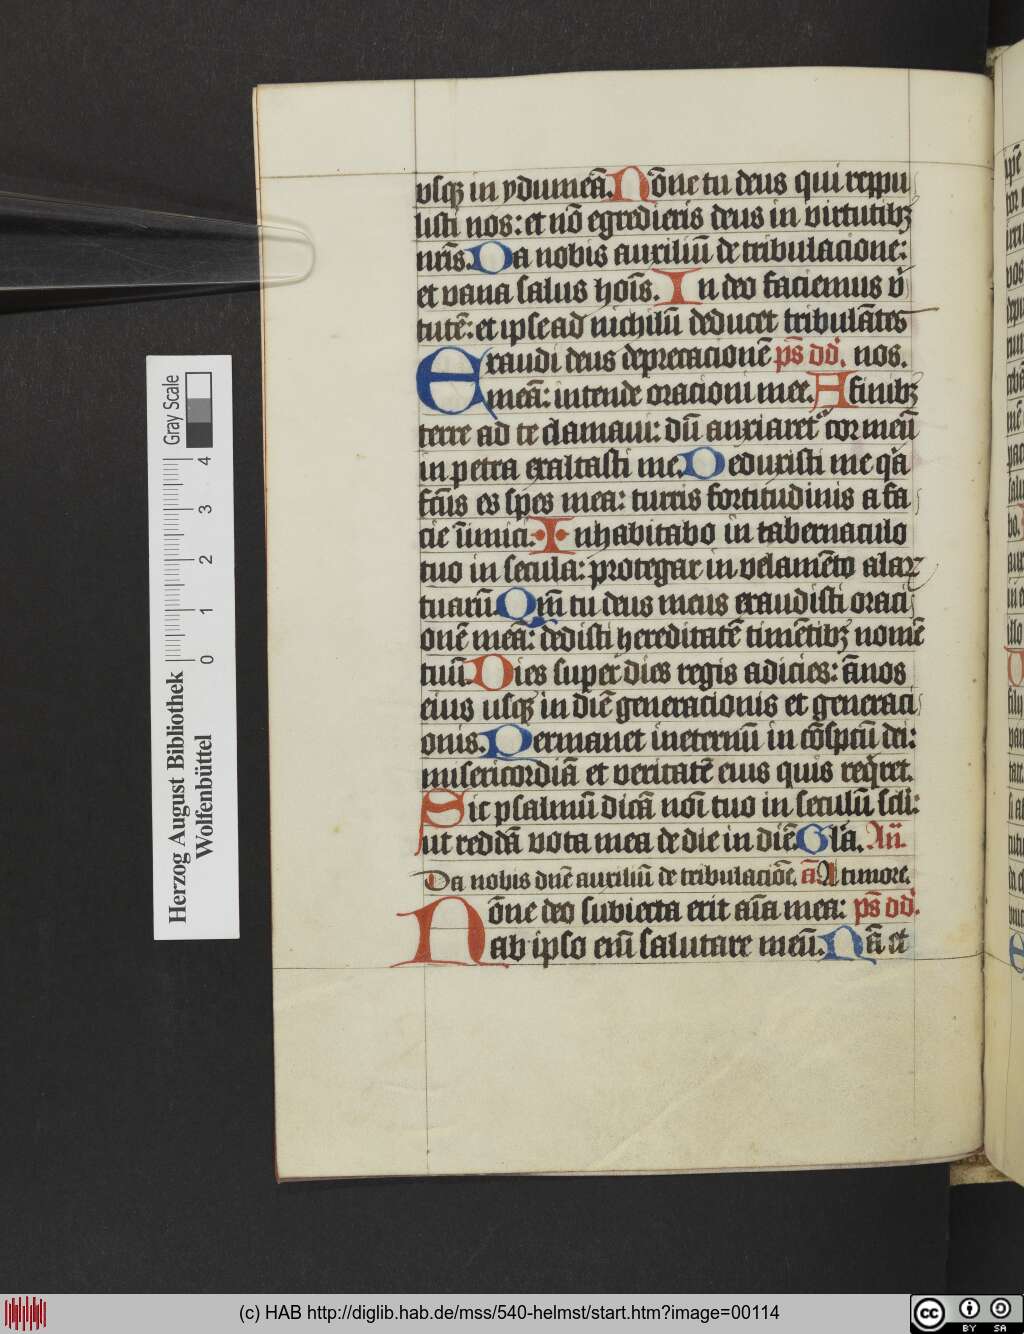 vsqꝫ in ydumeā. Nōne tu deus qui reppu
listi nos: et nō egredieris deus in virtutibꝫ
nr̄is. Da nobis auxiliū de tribulacione:
et vana salus hoīs. In deo faciemus v̇
tutē: et ipse ad nichilū deducet tribulātes
Exaudi deus deprecacionē p̄s dd̄. nos.
meā: intende oracioni mee. A finibꝫ
terre ad te clamaui: dū anxiaret᷑ cor meū
in petra exaltasti me. Deduxisti me q̇a
fc̄us es spes mea: turris fortitudinis a fa
cie īimici. Inhabitabo in tabernaculo
tuo in secula: protegar in velamēto alaꝝ
tuarū. Qm̄ tu deus meus exaudisti oraci
onē meā: dedisti hereditatē timētibꝫ nomē
tuū. Dies super dies regis adicies: ānos
eius usqꝫ in diē generacionis et generaci
onis. Permanet in eternū in cōspectu dei:
misericordiā et veritatē eius quis req̇ret.
Sic psalmū dicā noī tuo in seculū scl̄i:
ut reddā vota mea de die in diē. Gl̄a. An̄.
Da nobis dn̄e auxiliū de tribulaciōe. a᷑ A timore.
Nōne deo subiecta erit aīa mea: p̄s dd̄.
ab ipso enī salutare meū. Nā et
Herzog August Bibliothek
Wolfenbüttel
0 1 2 3 4
Gray Scale
(c) HAB http://diglib.hab.de/mss/540-helmst/start.htm?image=00114
cc BY SA